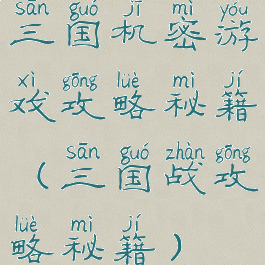 sān guó jī mì yóu
三国机密游
xì gōng lüè mì jí
戏攻略秘籍
sān guó zhàn gōng
（三国战攻
lüè mì jí
略秘籍）